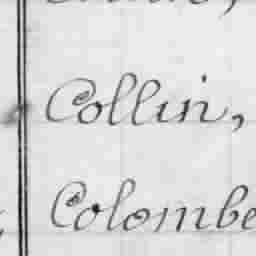 Collin,
Colombe